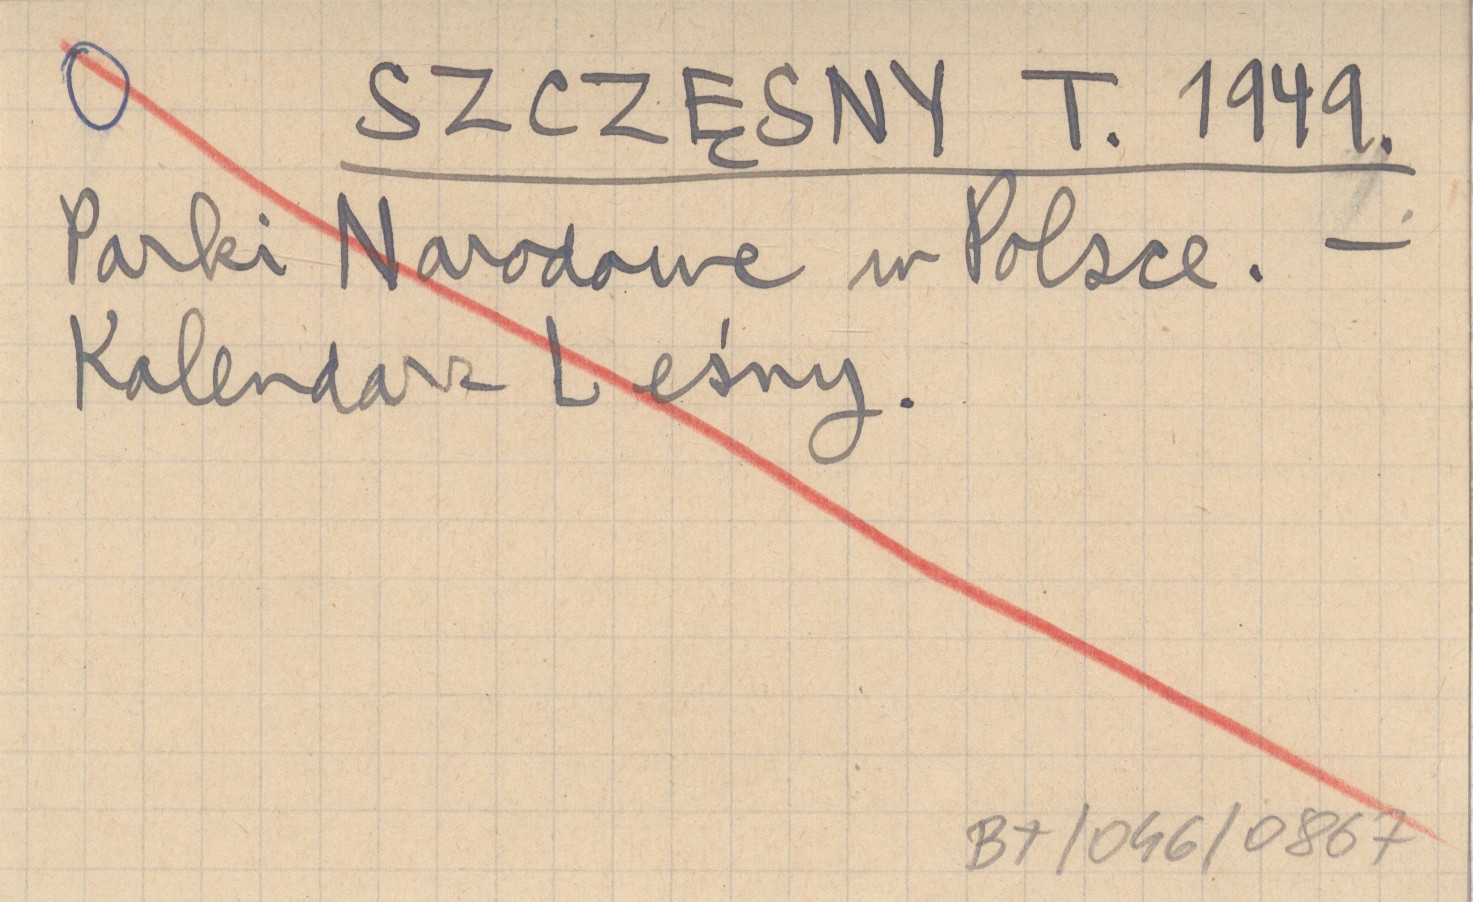 SZCZĘSNY T. 1949.
Parki Narodowe w Polsce. —
Kalendarz Leśny.
B7/046/0867